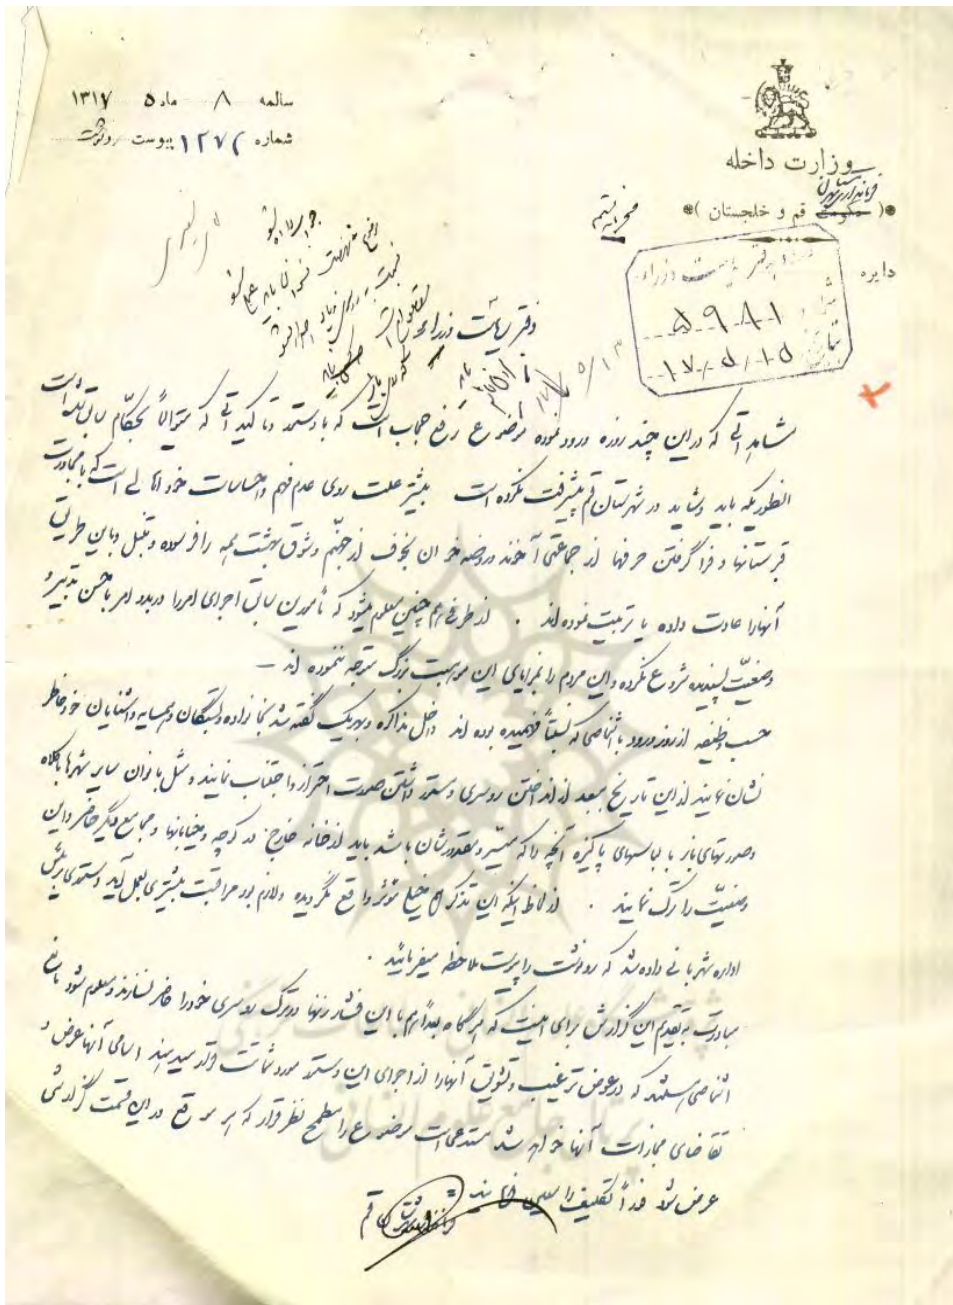 سالمه ۸ ماه ۵ ۱۳۱۷
شماره ۱۲۷۲ پیوست رونوشت
وزارت داخله
فرمانداری
حکومت قم و خلجستان
محرمانه مستقیم
دایره
ورود بدفتر ریاست وزراء
شماره ۵۹۸۱
بتاریخ ۱۷/۵/۱۵
دفتر ریاست وزراء
مشاهداتی که در این چند روزه ورود نموده موضوع رفع حجاب است که با دستور و تاکیداتی که متوالیاً بحکام سابق شده است
آنطوریکه باید و شاید در شهرستان قم پیشرفت نکرده است بیشتر علت روی عدم فهم و احساسات خود اهالی است که با مجاورت
قبرستانها و فرا گرفتن حرفها از جماعتی آخوند و روضه خوان بخوف از جهنم و شوق بهشت همه را فرسوده و تنبل و باین طریق
آنها را عادت داده یا تربیت نموده اند . از طرفی هم چنین معلوم میشود که مأمورین سابق اجرای امر را در بدو امر با حسن تدبیر و
وضعیت پسندیده شروع نکرده و این مردم را بمزایای این موهبت بزرگ متوجه ننموده اند –
حسب وظیفه از روز ورود با اشخاصی که نسبتاً فهمیده بوده اند داخل مذاکره و بهریک گفته شد بخانواده و بستگان و همسایه و آشنایان خود خاطر
نشان نمایند از این تاریخ ببعد از انداختن روسری و مستور داشتن صورت احتراز و اجتناب نمایند و مثل بانوان سایر شهرها با کلاه
و صورتهای باز با لباسهای پاکیزه آنچه را که میسر و مقدورشان باشد باید از خانه خارج در کوچه و خیابانها و مجامع دیگر حاضر و این
وضعیت را ترک نمایند . از لحاظ اینکه این تذکر خیلی مؤثر واقع نگردیده و لازم بود مراقبت بیشتری بعمل آید دستوری برئیس
اداره شهربانی داده شد که رونوشت را پیوست ملاحظه میفرمائید .
مبادرت بتقدیم این گزارش برای اینست که هرگاه بعداً هم با این فشار زنها در ترک روسری خود را حاضر نسازند و معلوم شود مانع
اشخاصی هستند که در عوض ترغیب و تشویق آنها را از اجرای این دستور مورد شماتت قرار میدهند اسامی آنها عرض و
تقاضای مجازات آنها خواهد شد مستدعی است موضوع را مطمح نظر قرار که هر موقع در این قسمت گزارشی
عرض شود فوراً تکلیف را معین فرمایند
فرماندار شهرستان قم